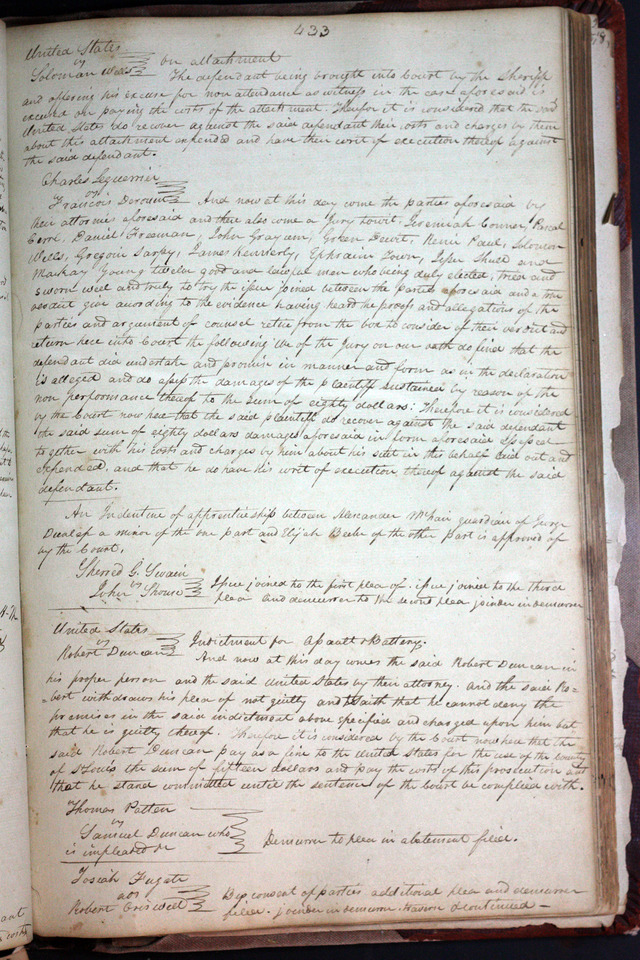 433
United States
vs
Soloman Wells
on attachment
The defendant being brought into Court by the Sheriff
and offering his excuse for non attendance as witness in the case aforesaid is
excused on paying the costs of the attachment. Therefore it is considered that the said
United States do recover against the said defendant their costs and charges by them
about this attachment expended and have their writ of execution thereof against
the said defendant.
Charles Leguerrier
vs
Francois Derouin
And now at this day come the parties aforesaid by
their attornies aforesaid and there also come a Jury towit, Jeremiah Conner, Pascal
Cerre, Daniel Freeman, John Graysen, Green Dewit, Rene Paul, Solomon
Wells, Gregoire Sarpy, James Kennerly, Ephraim Town, Jesse Shuse and
Mackay Young, twelve good and lawful men who being duly elected, tried and
sworn well and truly to try the issue joined between the parties aforesaid and a true
verdict give according to the evidence having heard the proofs and allegations of the
parties and argument of counsel retire from the bar to consider of their verdict and
return here into Court the following We of the Jury on our oath do find that the
defendant did undertake and promise in manner and form as in the declaration
is alleged and do assess the damages of the plaintiff sustained by reason of the
non performance thereof to the sum of eighty dollars: Therefore it is considered
by the Court now here that the said plaintiff do recover against the said defendant
the said sum of eighty dollars damages aforesaid in form aforesaid assessed
together with his costs and charges by him about his suit in this behalf laid out and
expended, and that he do have his writ of execution thereof against the said
defendant.
An Indenture of apprenticeship between Alexander McNair guardian of George
Dunlap a minor of the one part and Elijah Beebe of the other part is approved of
by the Court.
Sherred G. Swain
vs
John Shouse
Issue joined to the first plea of. issue joined to the third
plea and demurrer to the second plea joinder in demurrer
United States
vs
Robert Duncan
Indictment for Assault & Battery.
And now at this day comes the said Robert Duncan in
his proper person and the said United States by their attorney. And the said Ro-
bert withdraws his plea of not guilty and saith that he cannot deny the
premises in the said indictment above specified and charged upon him but
that he is guilty thereof. Therefore it is considered by the Court now here that the
said Robert Duncan pay as a fine to the United States for the use of the County
of St Louis the sum of fifteen dollars and pay the costs of this prosecution and
that he stand committed until the sentence of the Court be complied with.
Thomas Patten
vs
Samuel Duncan who
is impleaded &c
Demurrer to plea in abatement filed.
Josiah Fugate
ads
Robert Criswell
By consent of parties additional plea and demurrer
filed. joinder in demurrer. continued -